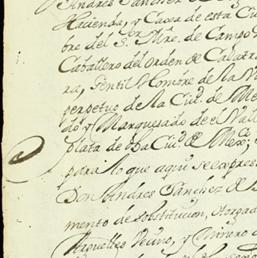 Andres Sanchez de
Hacienda, y Caxa de esta Ciu
bre del S.r Mre. de Campo D
Caballero del Orden de Calatra
va, Gentil Hombre de la
perpetuo de la Ciud. de Me
do y Marquesado de el Vall
plata de la Ciud. de Mexco.
para lo que aqui se expres
Don Andres Sanchez de
mento de Substitucion, otorgad
Arguelles Vecino, y